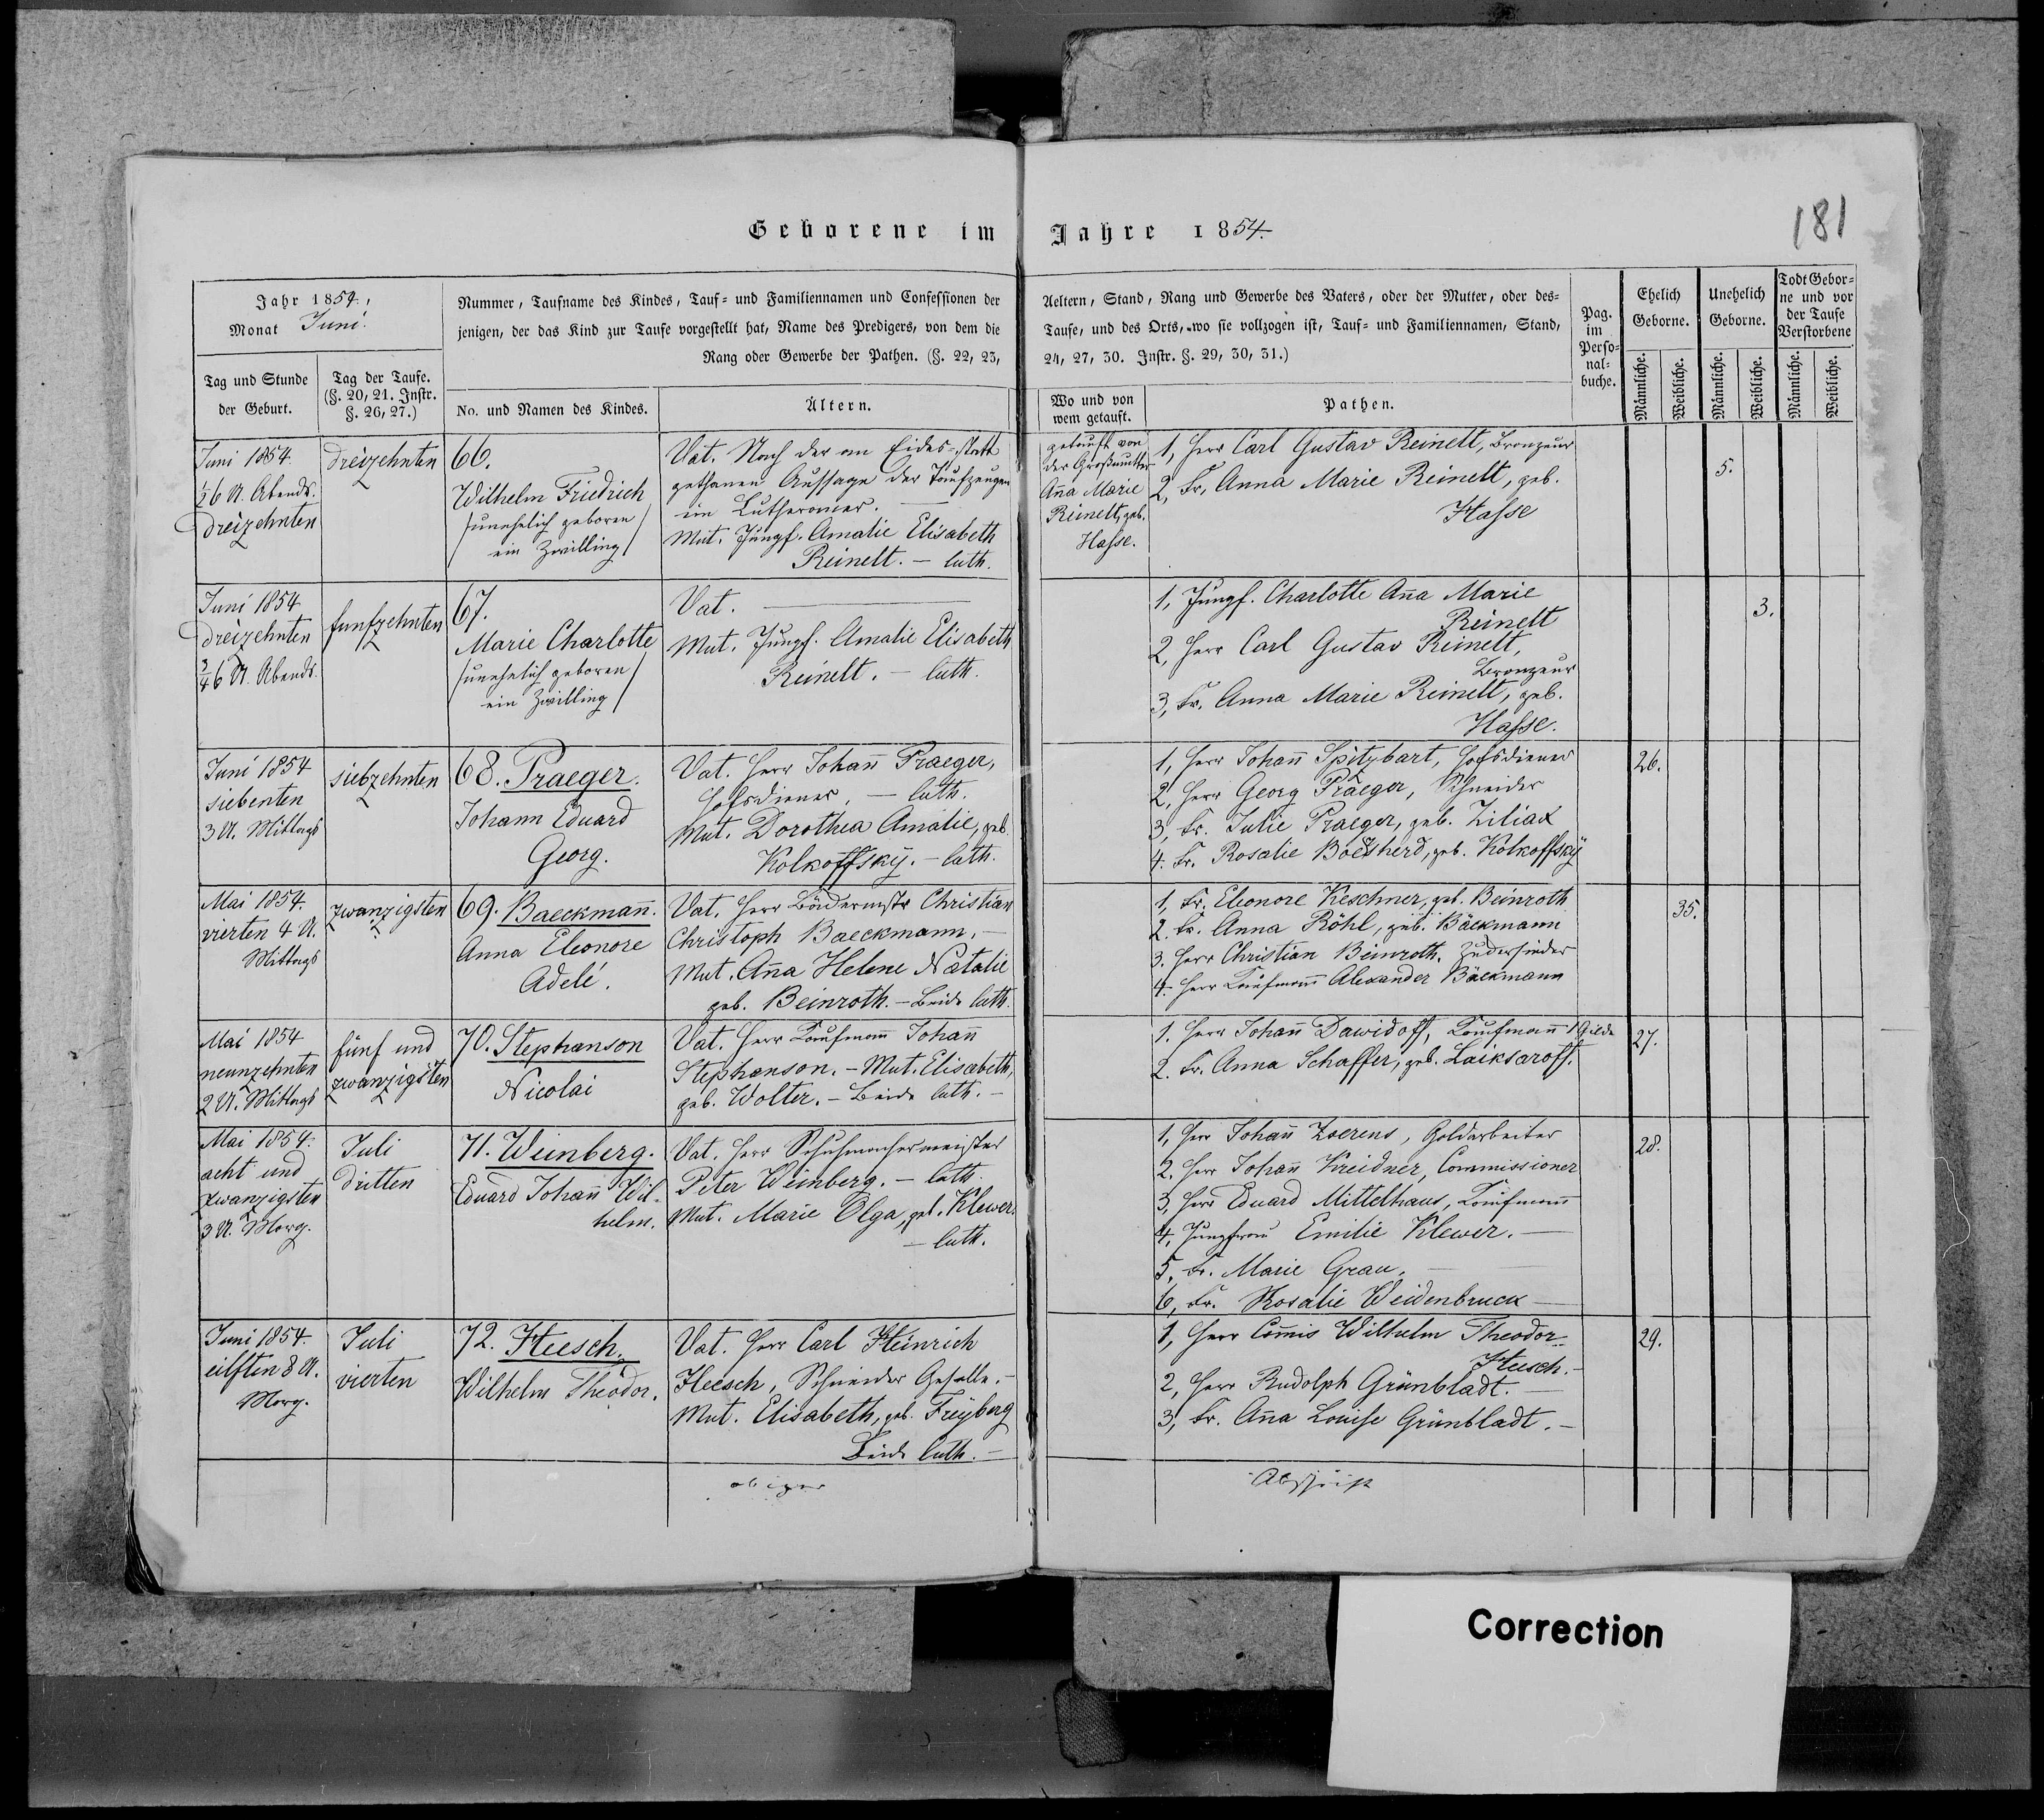 Geborene im Jahre 1854.
181
Jahr 1854.,
Monat Juni.
Nummer, Taufname des Kindes, Tauf- und Familiennamen und Confessionen der
jenigen, der das Kind zur Taufe vorgestellt hat, Name des Predigers, von dem die
Rang oder Gewerbe der Pathen. (§. 22, 23,
Aeltern, Stand, Rang und Gewerbe des Vaters, oder der Mutter, oder des-
Taufe, und des Orts, wo sie vollzogen ist, Tauf- und Familiennamen, Stand,
24, 27, 30. Instr. §. 29, 30, 31.)
Pag.
im
Perso-
nal-
buche.
Ehelich
Geborne.
Unehelich
Geborne.
Todt Gebor-
ne und vor
der Taufe
Verstorbene
Tag und Stunde
der Geburt.
Tag der Taufe.
(§. 20, 21. Instr.
§. 26, 27.)
No. und Namen des Kindes.
Ältern.
Wo und von
wem getauft.
Pathen.
Männliche.
Weibliche.
Männliche.
Weibliche.
Männliche.
Weibliche.
Juni 1854.
½6 U. Abends.
dreizehnten
dreizehnten
66.
Wilhelm Friedrich
/unehelich geboren
ein Zwilling/
Vat. Nach der an Eides-statt
gethanen Aussage der Taufzeugen
ein Lutheraner. —
Mut. Jungf. Amalie Elisabeth
Reinelt. — luth.
getauft von
der Großmutter
Anna Marie
Reinelt, geb.
Hasse.
1, Herr Carl Gustav Reinelt, Bronzeur
2, Fr. Anna Marie Reinelt, geb.
Hasse
5.
Juni 1854
dreizehnten
¾6 U. Abends.
funfzehnten
67.
Marie Charlotte
/unehelich geboren/
ein Zwilling/
Vat. —
Mut. Jungf. Amalie Elisabeth
Reinelt. — luth.
1, Jungf. Charlotte Anna Marie
Reinelt
2, Herr Carl Gustav Reinelt,
Bronzeur
3, Fr. Anna Marie Reinelt, geb.
Hasse.
3.
Juni 1854
siebenten
3 U. Mittags
siebzehnten
68. Praeger.
Johann Eduard
Georg.
Vat. Herr Johann Praeger,
Hofsdiener. — luth.
Mut. Dorothea Amalie, geb.
Kolkoffsky. — luth.
1, Herr Johann Spitzbart, Hofsdiener
2, Herr Georg Praeger, Schneider
3, Fr. Julie Praeger, geb. Ziliax
4. Fr. Rosalie geb. Kolkoffsky
26.
Mai 1854.
vierten 4 U.
Mittags
zwanzigsten
69. Baeckmann.
Anna Eleonore
Adelé.
Vat. Herr Christian
Christoph Baeckmann. —
Mut. Anna Helene Natalie
geb. Beinroth. — Beide luth.
1, Fr. Eleonore Keschner, geb. Beinroth
2. Fr. Anna Röhl, geb. Bäckmann
3. Herr Christian Beinroth, Zuckersieder
4. Herr Kaufmann Alexander Bäckmann
35.
Mai 1854
neunzehnten
2 U. Mittags
fünf und
zwanzigsten
70. Stephanson
Nicolai
Vat. Herr Kaufmann Johann
Stephanson. — Mut. Elisabeth,
geb. Wolter. — Beide luth. —
1. Herr Johann Dawidoff, Kaufmann 1 Gilde
2. Fr. Anna Schaffer, geb. Laiksaroff.
27.
Mai 1854.
acht und
zwanzigsten
3 U. Morg.
Juli
dritten
71. Weinberg.
Eduard Johann Wil-
helm.
Vat. Herr Schuhmachermeister
Peter Weinberg. — luth.
Mut. Marie Olga, geb. Klewer.
— luth.
1, Herr Johann Zoerens, Goldarbeiter
2. Herr Johann Kreidner, Commissioner
3, Herr Eduard Mittelhaus, Kaufmann
4, Jungfrau Emilie Klewer. —
5, Fr. Marie Grau. —
6, Fr. Rosalie Weidenbruck —
28.
Juni 1854.
eilften 8 U.
Morg.
Juli
vierten
72. Heesch.
Wilhelm Theodor.
Vat. Herr Carl Heinrich
Heesch, Schneider Geselle. —
Mut. Elisabeth, geb. Freyberg
Beide luth. —
1, Herr Commis Wilhelm Theodor
Heesch. —
2, Herr Rudolph Grünbladt. —
3, Fr. Anna Louise Grünbladt. —
29.
Abschrift
Correction